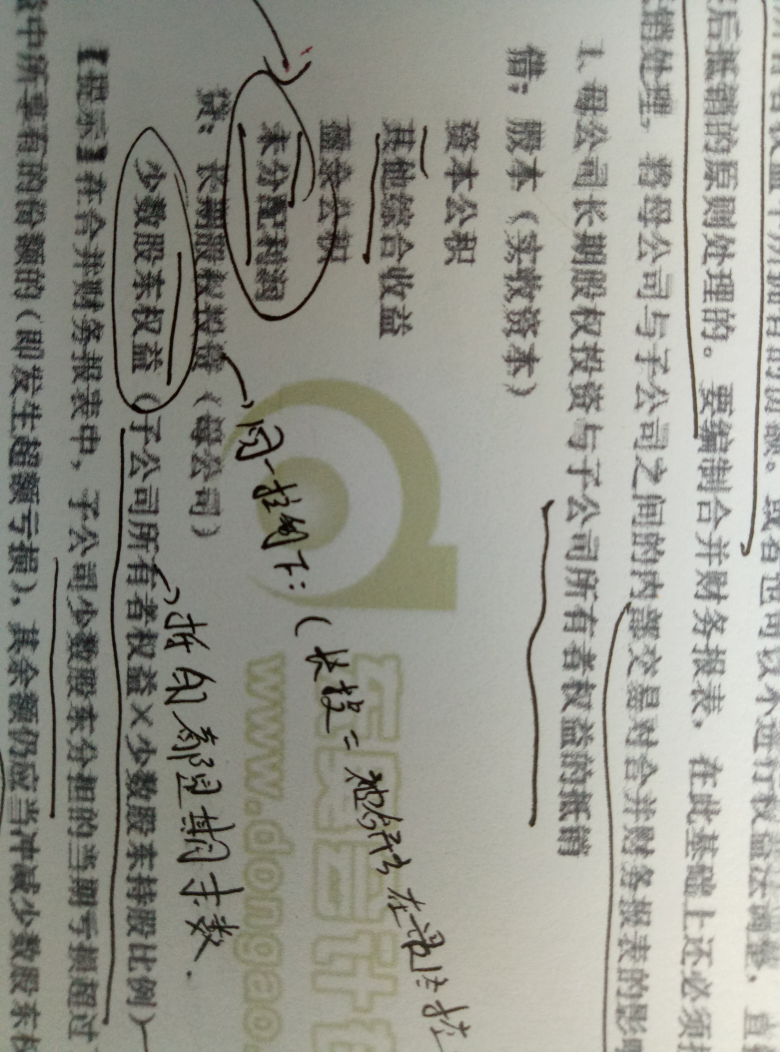 后抵销的原则处理的。要编制合并财务报表，在此基础上还必须
销处理，将母公司与子公司之间的内部交易对合并财务报表的影
1. 母公司长期股权投资与子公司所有者权益的抵销
借：股本（实收资本）
资本公积
其他综合收益
盈余公积
未分配利润
贷：长期股权投资（母公司）
少数股东权益（子公司所有者权益×少数股东持股比例）
【提示】在合并财务报表中，子公司少数股东分担的当期亏损超过
中所享有的份额的（即发生超额亏损），其余额仍应当冲减少数股东权
同一控制下：（长投=
指的都是期末数.
东奥会计在
www.dongao.